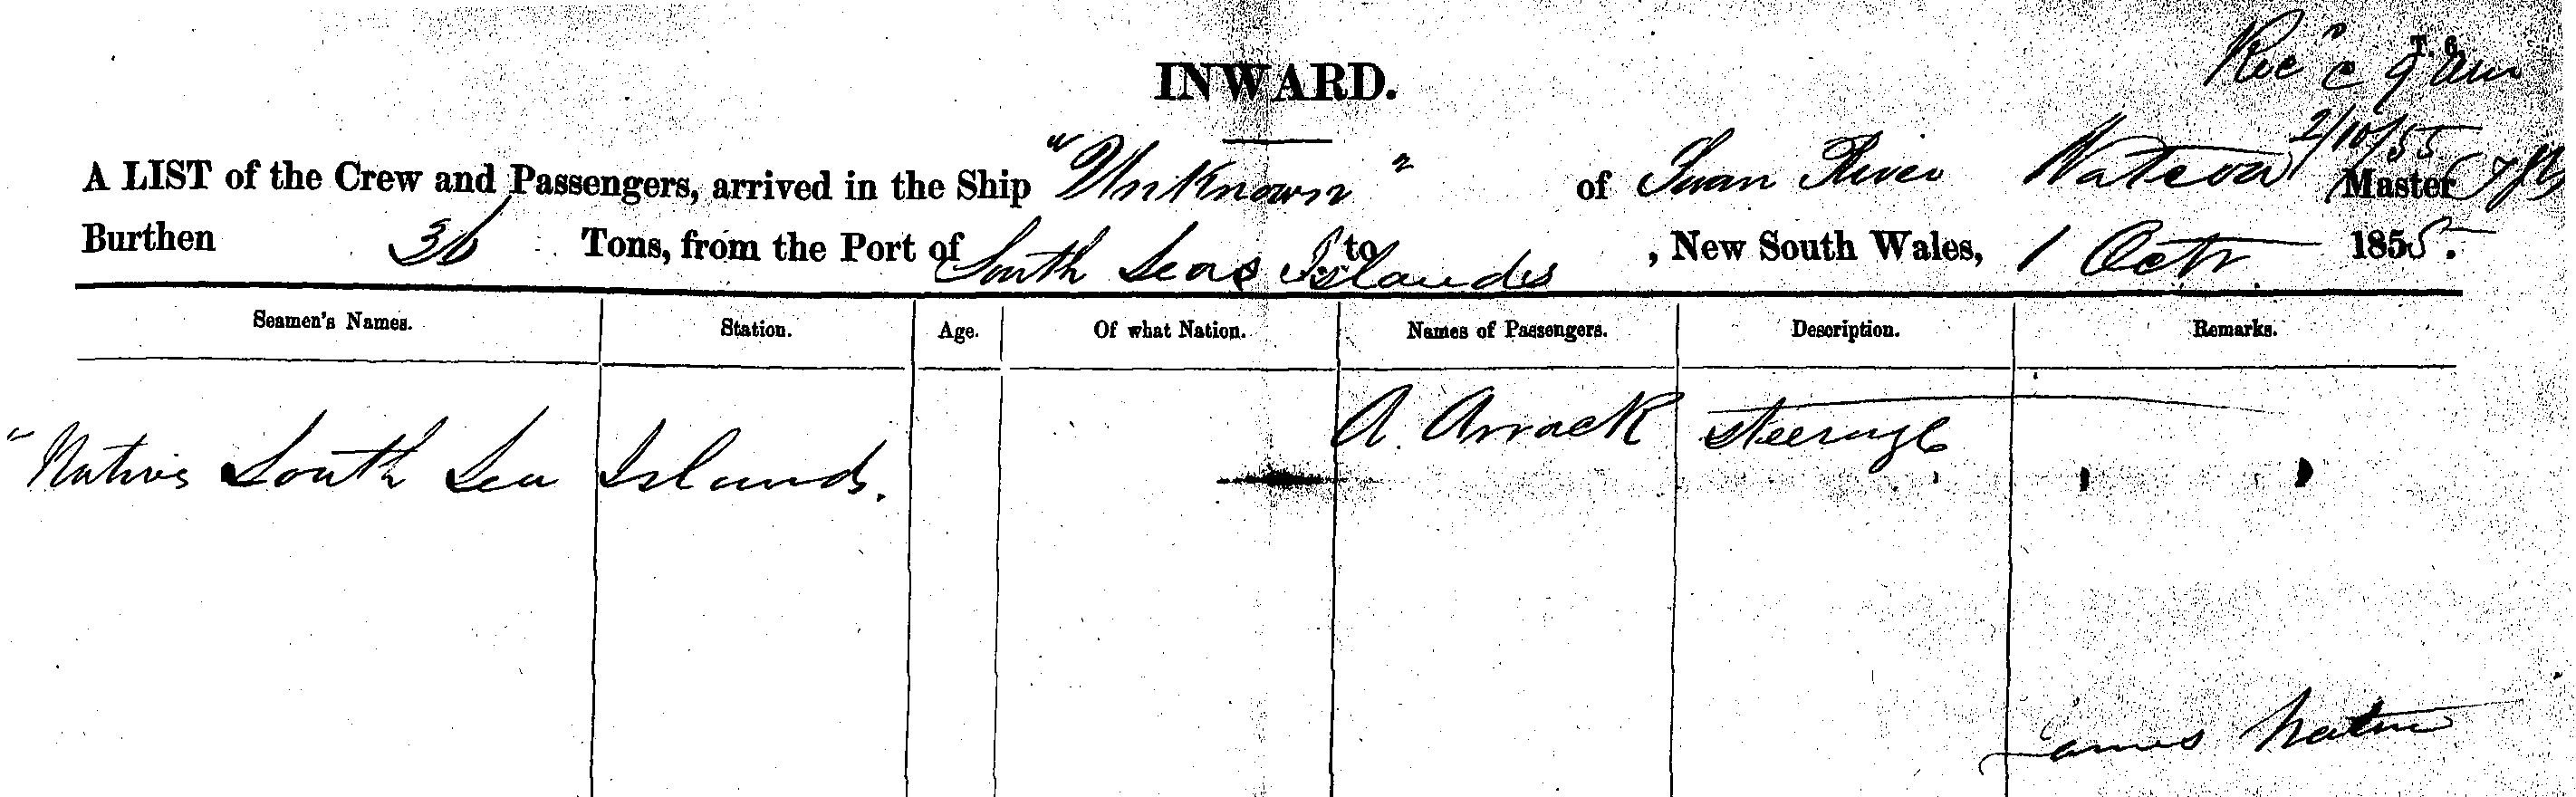 T. 6.
Rec'd 9 am
INWARD.
2/10/55
A LIST of the Crew and Passengers, arrived in the Ship "Unknown" of Swan River Watson Master
Burthen 36 Tons, from the Port of South Seas Islands to , New South Wales, 1 Octr 1855.
Seamen's Names. Station. Age. Of what Nation. Names of Passengers. Description. Remarks.
A. Arrack Steerage
"Natives South Sea Islands.
James Watson